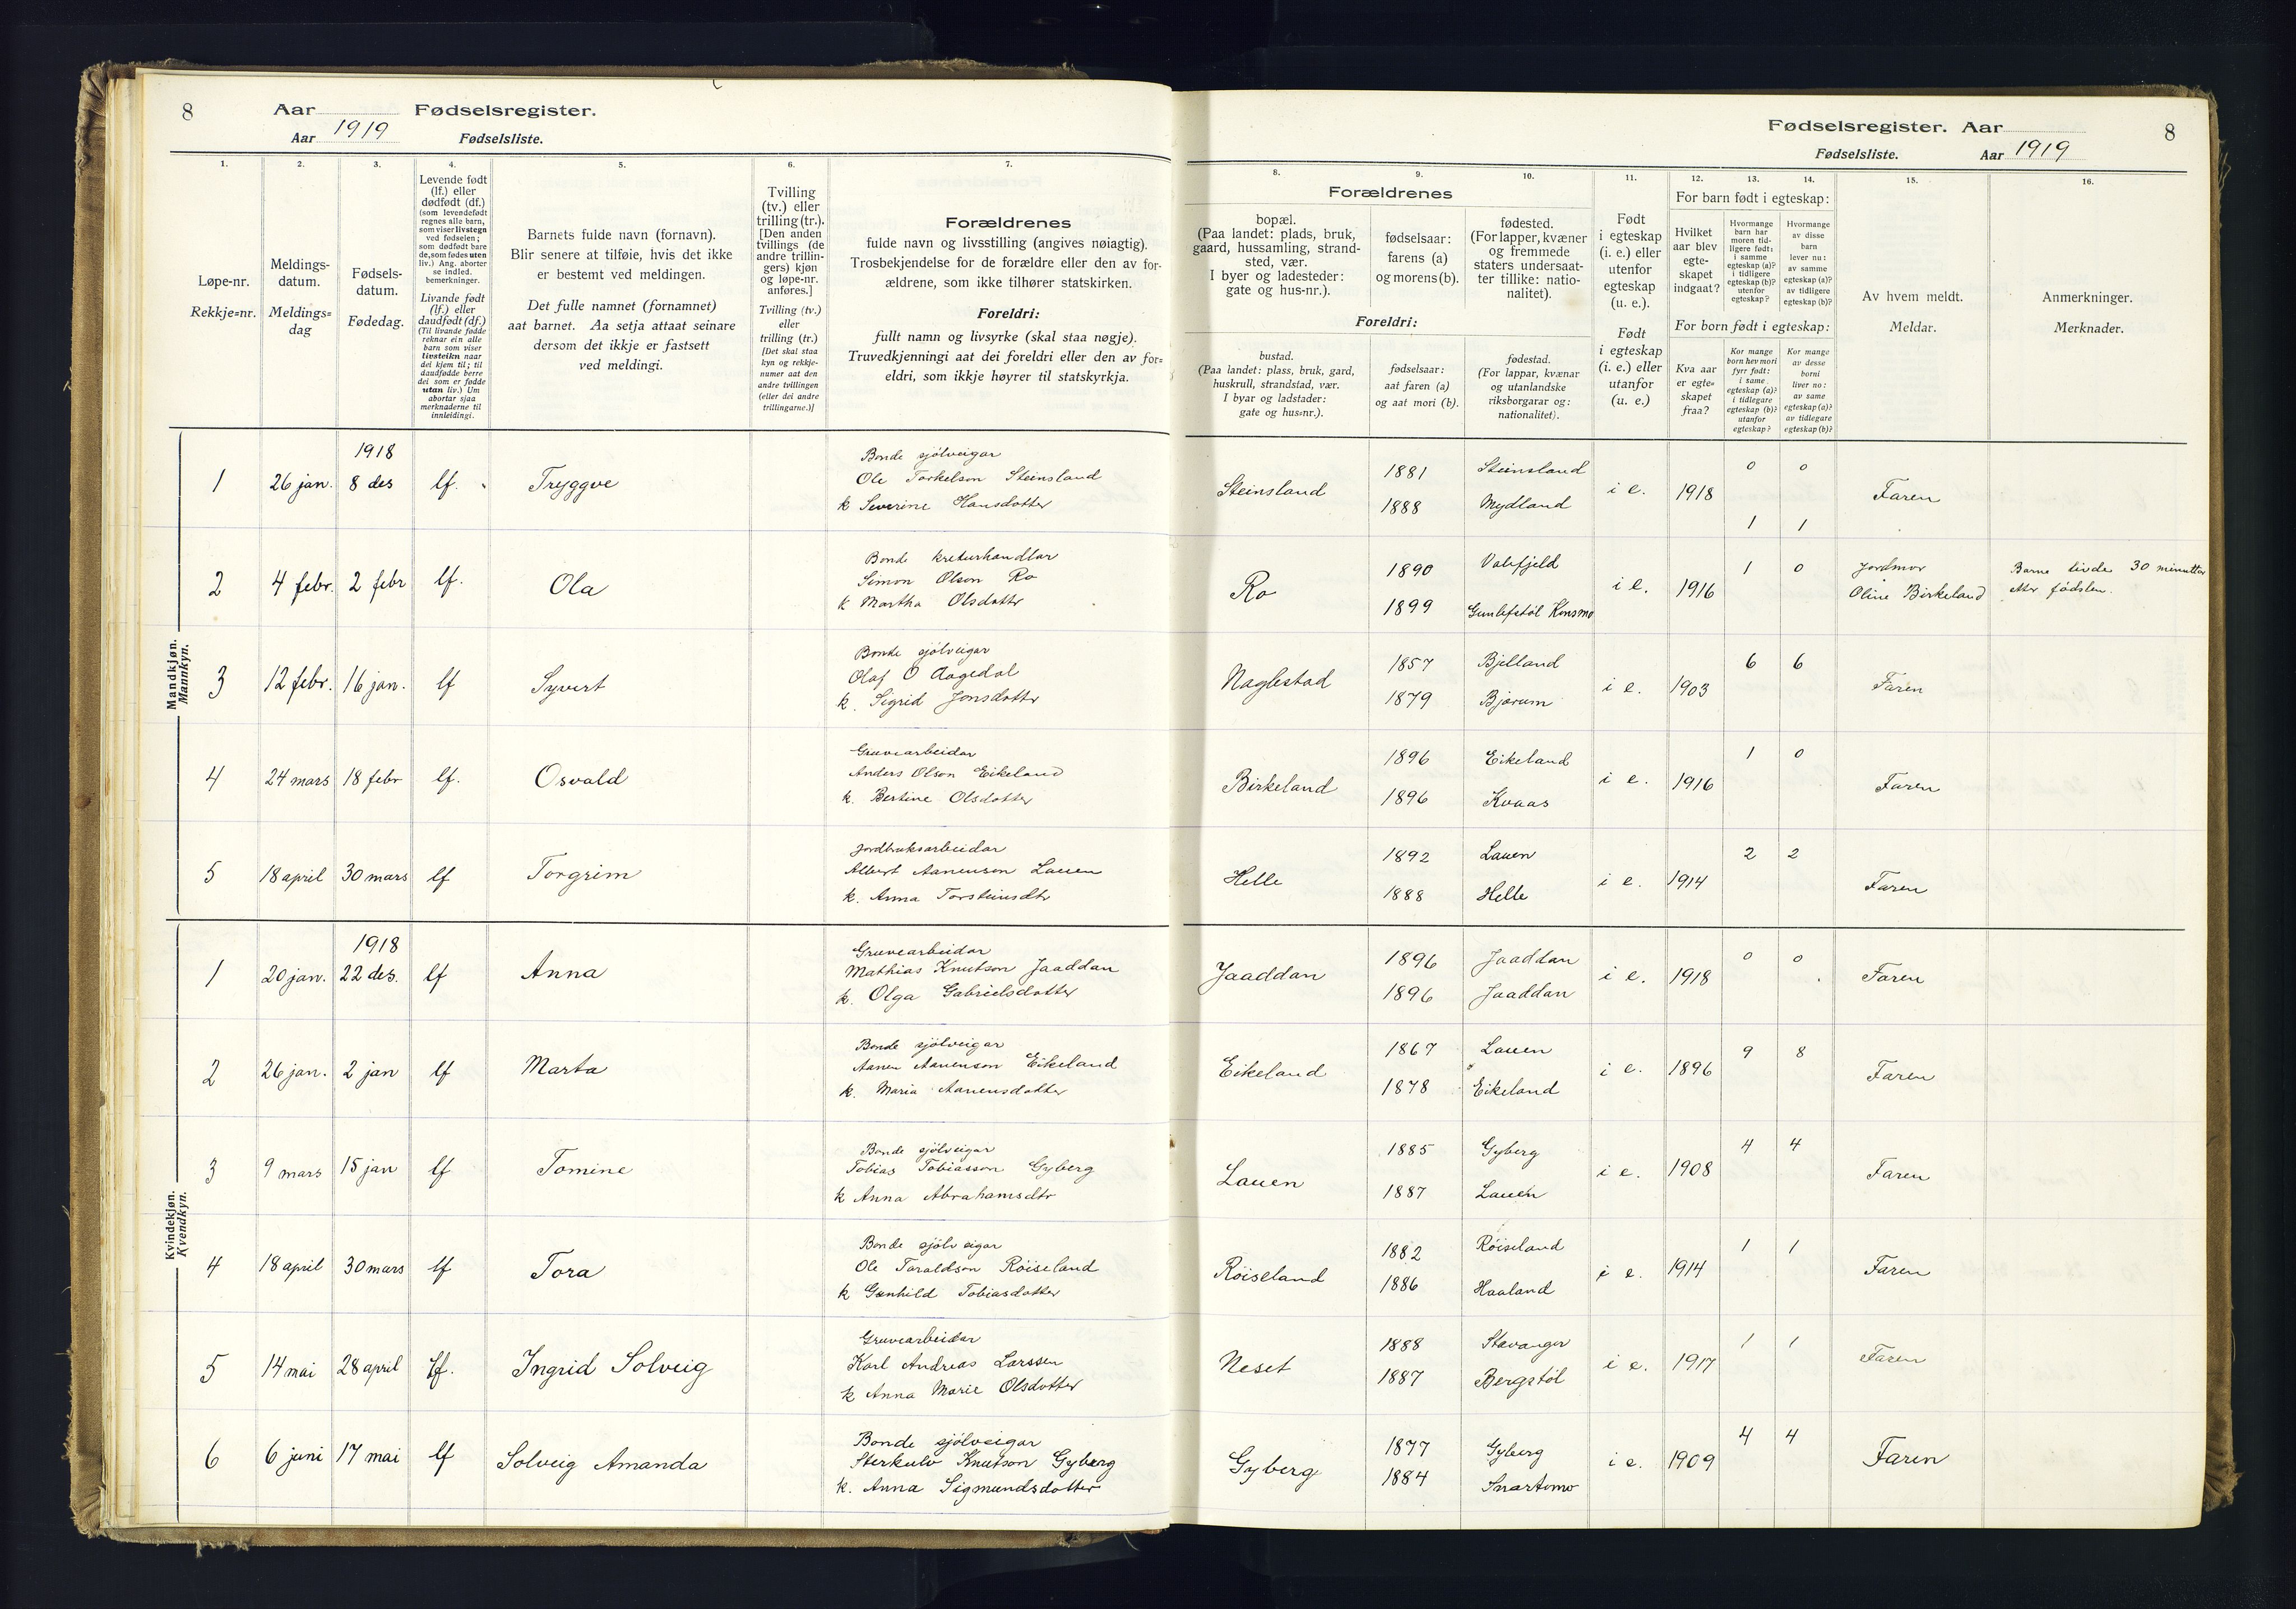 8 Aar Fødselsregister.
Aar 1919 Fødselsliste.
1. 2. 3. 4. 5. 6. 7.
Løpe-nr.
Rekkje=nr.
Meldings-
datum.
Meldings=
dag
Fødsels-
datum.
Fødedag.
Levende født
(lf.) eller
dødfødt (df.)
(som levendefødt
regnes alle barn,
som viser livstegn
ved fødselen;
som dødfødt bare
de, som fødes uten
liv.) Ang. aborter
se indled.
bemerkninger.
Livande født
(lf.) eller
daudfødt (df.)
(Til livande fødde
reknar ein alle
barn som viser
livsteikn naar
dei kjem til; til
daudfødde berre
dei som er fødde
utan liv.) Um
abortar sjaa
merknaderne til
innleidingi.
Barnets fulde navn (fornavn).
Blir senere at tilføie, hvis det ikke
er bestemt ved meldingen.
Det fulle namnet (fornamnet)
aat barnet. Aa setja attaat seinare
dersom det ikkje er fastsett
ved meldingi.
Tvilling
(tv.) eller
trilling (tr.).
[Den anden
tvillings (de
andre trillin-
gers) kjøn
og løpe-nr.
anføres.]
Tvilling (tv.)
eller
trilling (tr.)
[Det skal staa
kyn og rekkje-
numer aat den
andre tvillingen
(eller dei andre
trillingarne.)]
Forældrenes
fulde navn og livsstilling (angives nøiagtig).
Trosbekjendelse for de forældre eller den av for-
ældrene, som ikke tilhører statskirken.
Foreldri:
fullt namn og livsyrke (skal staa nøgje).
Truvedkjenningi aat dei foreldri eller den av for=
eldri, som ikkje høyrer til statskyrkja.
Mandkjøn.
Mannkyn.
1918
1 26 jan. 8 des lf. Tryggve
Bonde sjölveigar
Ole Torkelson Steinsland
k Severine Hansdotter
2 4 febr. 2 febr lf. Ola
Bonde kreturhandlar
Simon Olson Ro
k Martha Olsdottr
3 12 febr. 16 jan. lf Syvert
Bonde sjölveigar
Olaf O Aagedal
k. Sigrid Jonsdottr
4 24 mars 18 febr lf. Osvald
Gruvearbeidar
Anders Olson Eikeland
k. Bertine Olsdotter
5 18 april 30 mars lf Torgrim
Jordbruksarbeidar
Albert Aanenson Lauen
k. Anna Torsteinsdtr
Kvindekjøn.
Kvendkyn.
1918
1 20 jan. 22 des. lf Anna
Gruvearbeidar
Mathias Knutson Jaaddan
k. Olga Gabrielsdotter
2 26 jan. 2 jan lf Marta
Bonde sjölveigar
Aanen Aanenson Eikeland
k. Maria Aanensdotter
3 9 mars 15 jan lf Tomine
Bonde sjölveigar
Tobias Tobiasson Gyberg
k Anna Abrahamsdtr
4 18 april 30 mars lf Tora
Bonde sjölveigar
Ole Taraldson Röiseland
k Gunhild Tobiasdotter
5 14 mai 28 april lf. Ingrid Solveig
Gruvearbeidar
Karl Andreas Larssen
k Anna Marie Olsdotter
6 6 juni 17 mai lf Solveig Amanda
Bonde sjölveigar
Sterkulv Knutson Gyberg
k. Anna Sigmundsdotter
Fødselsregister. Aar 8
Fødselsliste. Aar 1919
8. 9. 10. 11. 12. 13. 14. 15. 16.
Forældrenes
bopæl.
(Paa landet: plads, bruk,
gaard, hussamling, strand-
sted, vær.
I byer og ladesteder:
gate og hus-nr.).
fødselsaar:
farens (a)
og morens (b).
fødested.
(For lapper, kvæner
og fremmede
staters undersaat-
ter tillike: natio-
nalitet).
Foreldri:
bustad.
(Paa landet: plass, bruk, gard,
huskrull, strandstad, vær.
I byar og ladstader:
gate og hus=nr.).
fødselsaar:
aat faren (a)
og aat mori (b).
fødestad.
(For lappar, kvænar
og utanlandske
riksborgarar og:
nationalitet).
Født
i egteskap
(i. e.) eller
utenfor
egteskap
(u. e.).
Født
i egteskap
(i. e.) eller
utanfor
(u. e.)
For barn født i egteskap:
Hvilket
aar blev
egte-
skapet
indgaat?
Hvormange
barn har
moren tid-
ligere født:
i samme
egteskap (a)?
i tidligere
egteskap (b)?
utenfor
egteskap?
Hvormange
av disse
barn
lever nu:
av samme
egteskap (a)?
av tidligere
egteskap (b)?
For born født i egteskap:
Kva aar
er egte=
skapet
fraa?
Kor mange
born hev mori
fyrr født:
i same
egteskap (a)?
i tidlegare
egteskap (b)?
utanfor
egteskap?
Kor mange
av desse
borni
liver no:
av same
egteskap (a)?
av tidlegare
egteskap (b)?
Av hvem meldt.
Meldar.
Anmerkninger.
Merknader.
Steinsland 1881 Steinsland i e. 1918 0 0 Faren
1888 Mydland 1 1
Ro 1890 Valefjeld i e. 1916 1 0 Jordmor Barne livde 30 minutter
1899 Gunlefstöl Konsmo Oline Birkeland etter fødslen.
Naglestad 1857 Bjelland i e. 1903 6 6 Faren
1879 Bjærum
Birkeland 1896 Eikeland i e. 1916 1 0 Faren
1896 Kvaas
Helle 1892 Lauen i e. 1914 2 2 Faren
1888 Helle
Jaaddan 1896 Jaaddan i e. 1918 0 0 Faren
1896 Jaaddan
Eikeland 1867 Lauen i e. 1896 9 8 Faren
1878 Eikeland
Lauen 1885 Gyberg i e. 1908 4 4 Faren
1887 Lauen
Röiseland 1882 Röiseland i e. 1914 1 1 Faren
1886 Haaland
Neset 1888 Stavanger i e. 1917 1 1 Faren
1887 Bergstöl
Gyberg 1877 Gyberg i e. 1909 4 4 Faren
1884 Snartemo